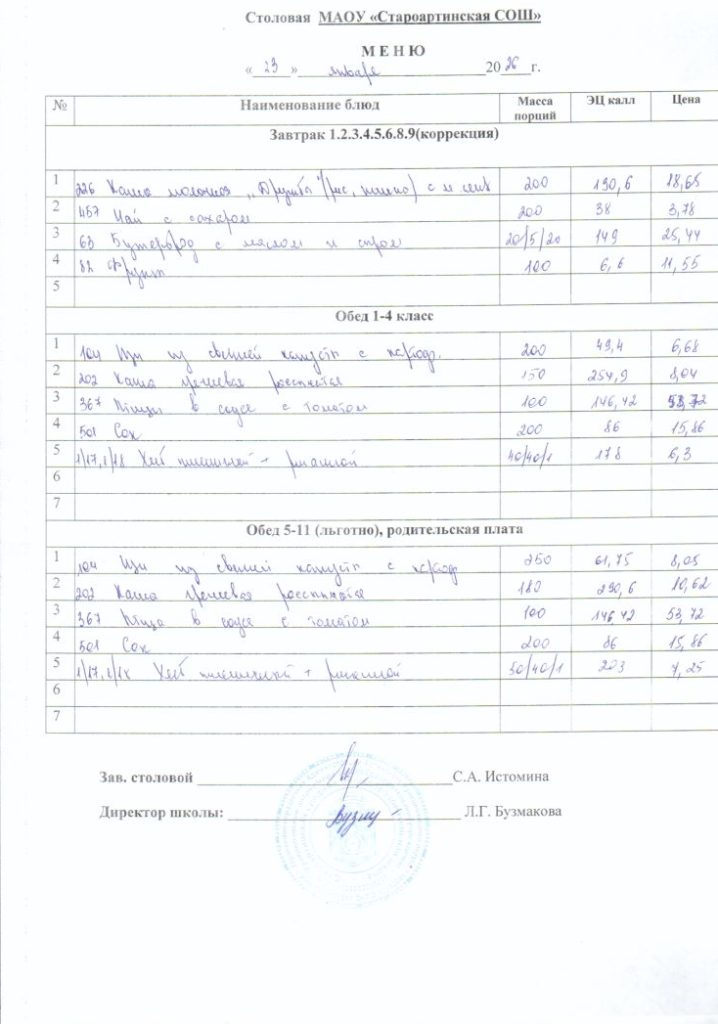 Столовая МАОУ «Староартинская СОШ»
М Е Н Ю
« 23 » января 2026 г.
№ Наименование блюд Масса порций ЭЦ калл Цена
Завтрак 1.2.3.4.5.6.8.9(коррекция)
1 226 Каша молочная "Дружба" (рис, пшено) с м 200 190,6 18,65
2 457 Чай с сахаром 200 38 3,78
3 63 Бутерброд с маслом и сыром 20/5/20 149 25,44
4 82 Фрукт 100 6,6 11,55
5
Обед 1-4 класс
1 104 Щи из свежей капусты с картоф. 200 49,4 6,68
2 202 Каша гречневая рассыпчатая 150 254,9 8,04
3 367 Птица в соусе с томатом 100 146,42 53,72
4 501 Сок 200 86 15,86
5 1/17,1/18 Хлеб пшеничный + ржаной 40/40/1 178 6,3
6
7
Обед 5-11 (льготно), родительская плата
1 104 Щи из свежей капусты с картоф 250 61,75 8,05
2 202 Каша гречневая рассыпчатая 180 290,6 10,62
3 367 Птица в соусе с томатом 100 146,42 53,72
4 501 Сок 200 86 15,86
5 1/17,1/18 Хлеб пшеничный + ржаной 50/40/1 203 7,25
6
7
Зав. столовой С.А. Истомина
Директор школы: Л.Г. Бузмакова